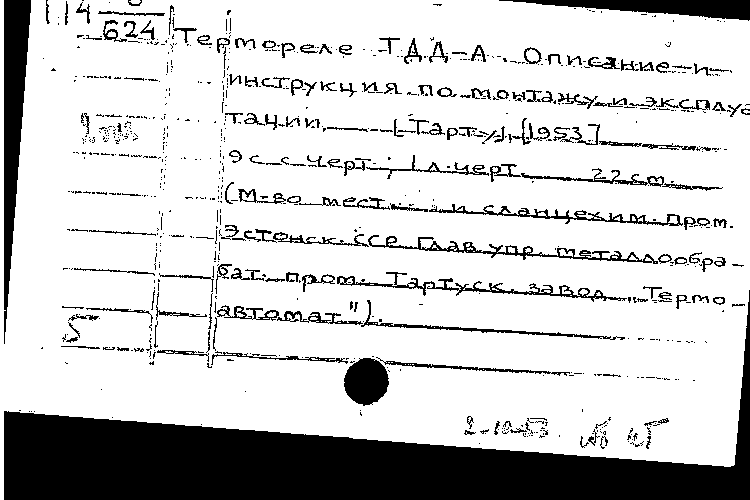 114 624
Термореле ТДД-А. Описание и
инструкция по монтажу и эксплуа
тации. [Тарту], [1953]
9 с. с черт.; 1 л. черт. 22 см.
(М-во мест. и сланцехим. пром.
Эстонск. ССР. Глав. упр. металлообра-
бат. пром. Тартуск. завод „Термо-
автомат").
5
2-10-53